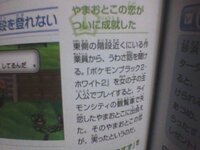 段を登れない
してるんだ
やまおとこの恋が
ついに成就した
東側の階段近くにいる作
業員から、うわさ話を聞け
る。『ポケモンブラック2・
ホワイト2』を女の子の主
人公でプレイすると、ライ
モンシティの観覧車で失
恋したやまおとこに出会え
た。そのやまおとこの恋
が、実ったというのだ。